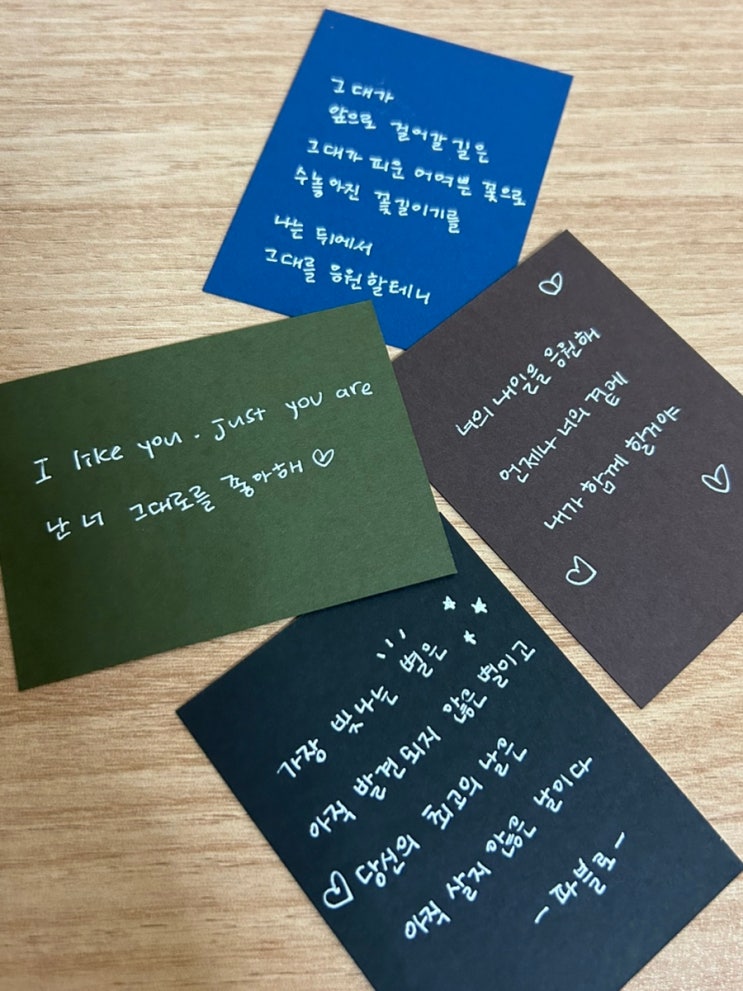 그대가
앞으로 걸어갈 길은
그대가 피운 어여쁜 꽃으로
수놓아진 꽃길이기를
나는 뒤에서
그대를 응원할테니
너의 내일을 응원해
언제나 너의 곁에
내가 함께 할거야
I like you. just you are
난 너 그대로를 좋아해
가장 빛나는 별은
아직 발견되지 않은 별이고
당신의 최고의 날은
아직 살지 않은 날이다
- 파블로 -